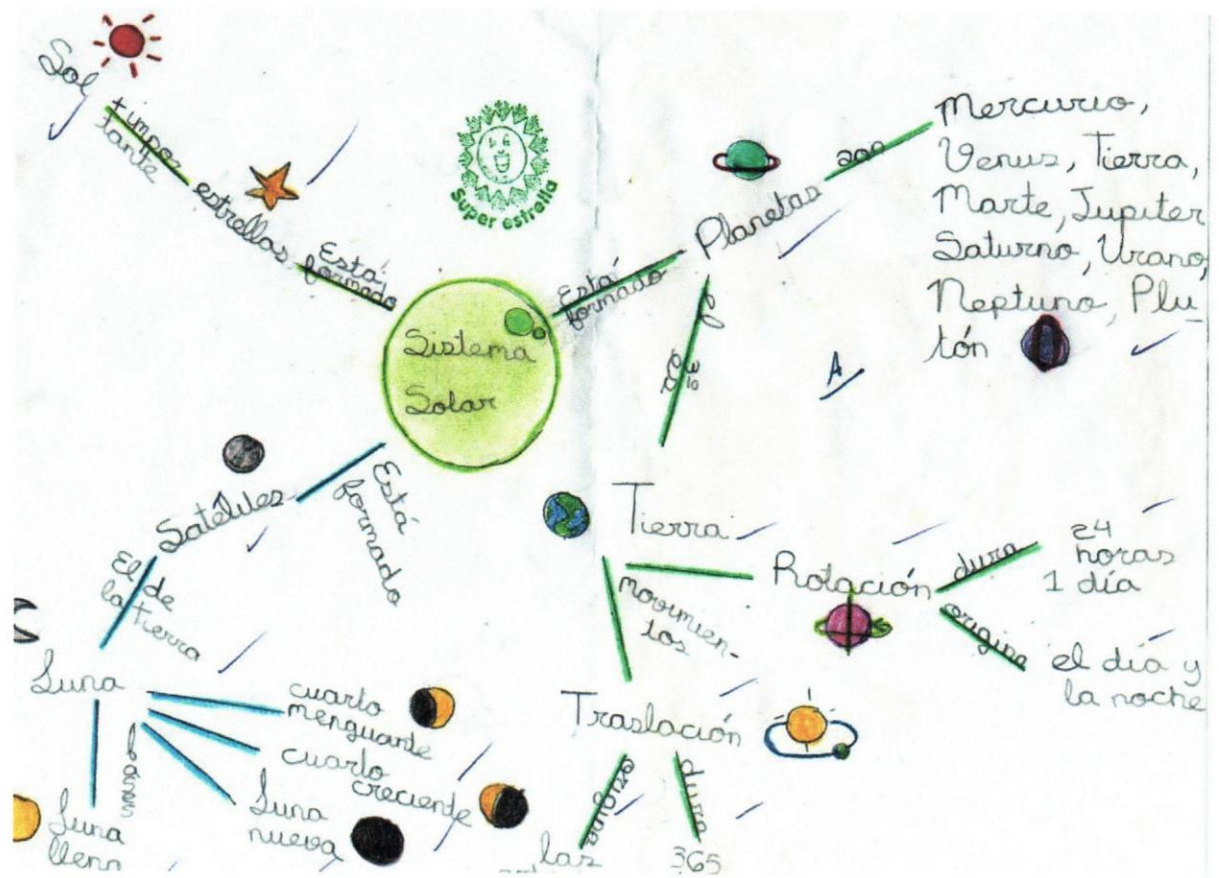 Sol
+ impor
tante
estrellas
Está
formado
Super estrella
Sistema
Solar
Está
formado
Planetas
son
Mercurio,
Venus, Tierra,
Marte, Jupiter
Saturno, Urano,
Neptuno, Plu_
tón
A
el
3º
es
Tierra
movimien-
tos
Rotación
dura
24
horas
1 día
origina
el día y
la noche
Traslación
origina
las
dura
365
Está
formado
Satélites
El de
la tierra
Luna
fases
cuarto
menguante
cuarto
creciente
Luna
nueva
Luna
llena